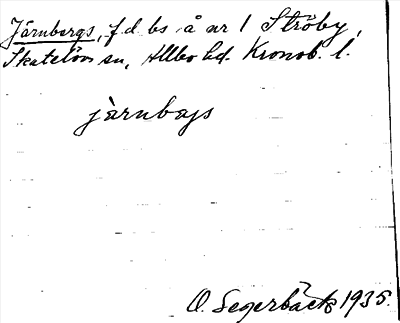 Järnbergs, f.d. bs å nr 1 Ströby,
Skatelöv sn, Allbo hd. Kronob. l.
järnbajs
O. Segerbäck 1935.